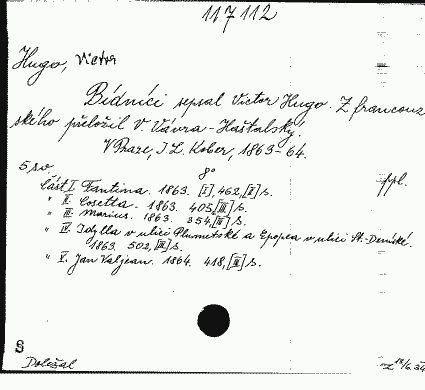 117112
Hugo, Victor
Bídníci sepsal Victor Hugo. Z francouz
ského přeložil V. Vávra-Haštalský.
V Praze, I. L. Kober, 1863-64.
5 sv. 8°
Část I. Fantina. 1863. [I], 462, [II] s. ppl.
" II. Cosetta. 1863. 405, [III] s.
" III. Marius. 1863. 354, [II] s.
" IV. Idylla v ulici Plumetské a Epopea v ulici St.-Deniské.
1863. 502, [II] s.
" V. Jan Valjean. 1864. 418, [II] s.
S
Doležal